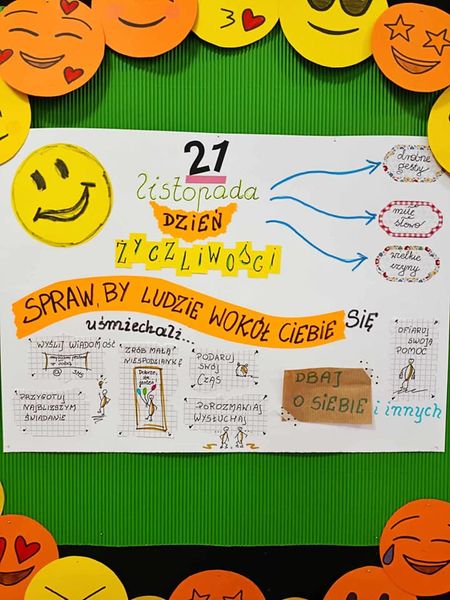 21
listopada
DZIEŃ
ŻYCZLIWOŚCI
drobne
gesty
miłe
słowo
wielkie
czyny
SPRAW, BY LUDZIE WOKÓŁ CIEBIE SIĘ
uśmiechali...
WYŚLIJ WIADOMOŚĆ
PRZYGOTUJ
NAJBLIŻSZYM
ŚNIADANIE
ZRÓB MAŁĄ
NIESPODZIANKĘ
Dobrze,
że
jesteś
PODARUJ
SWÓJ
CZAS
POROZMAWIAJ
WYSŁUCHAJ
DBAJ
O SIEBIE i innych
OFIARUJ
SWOJĄ
POMOC